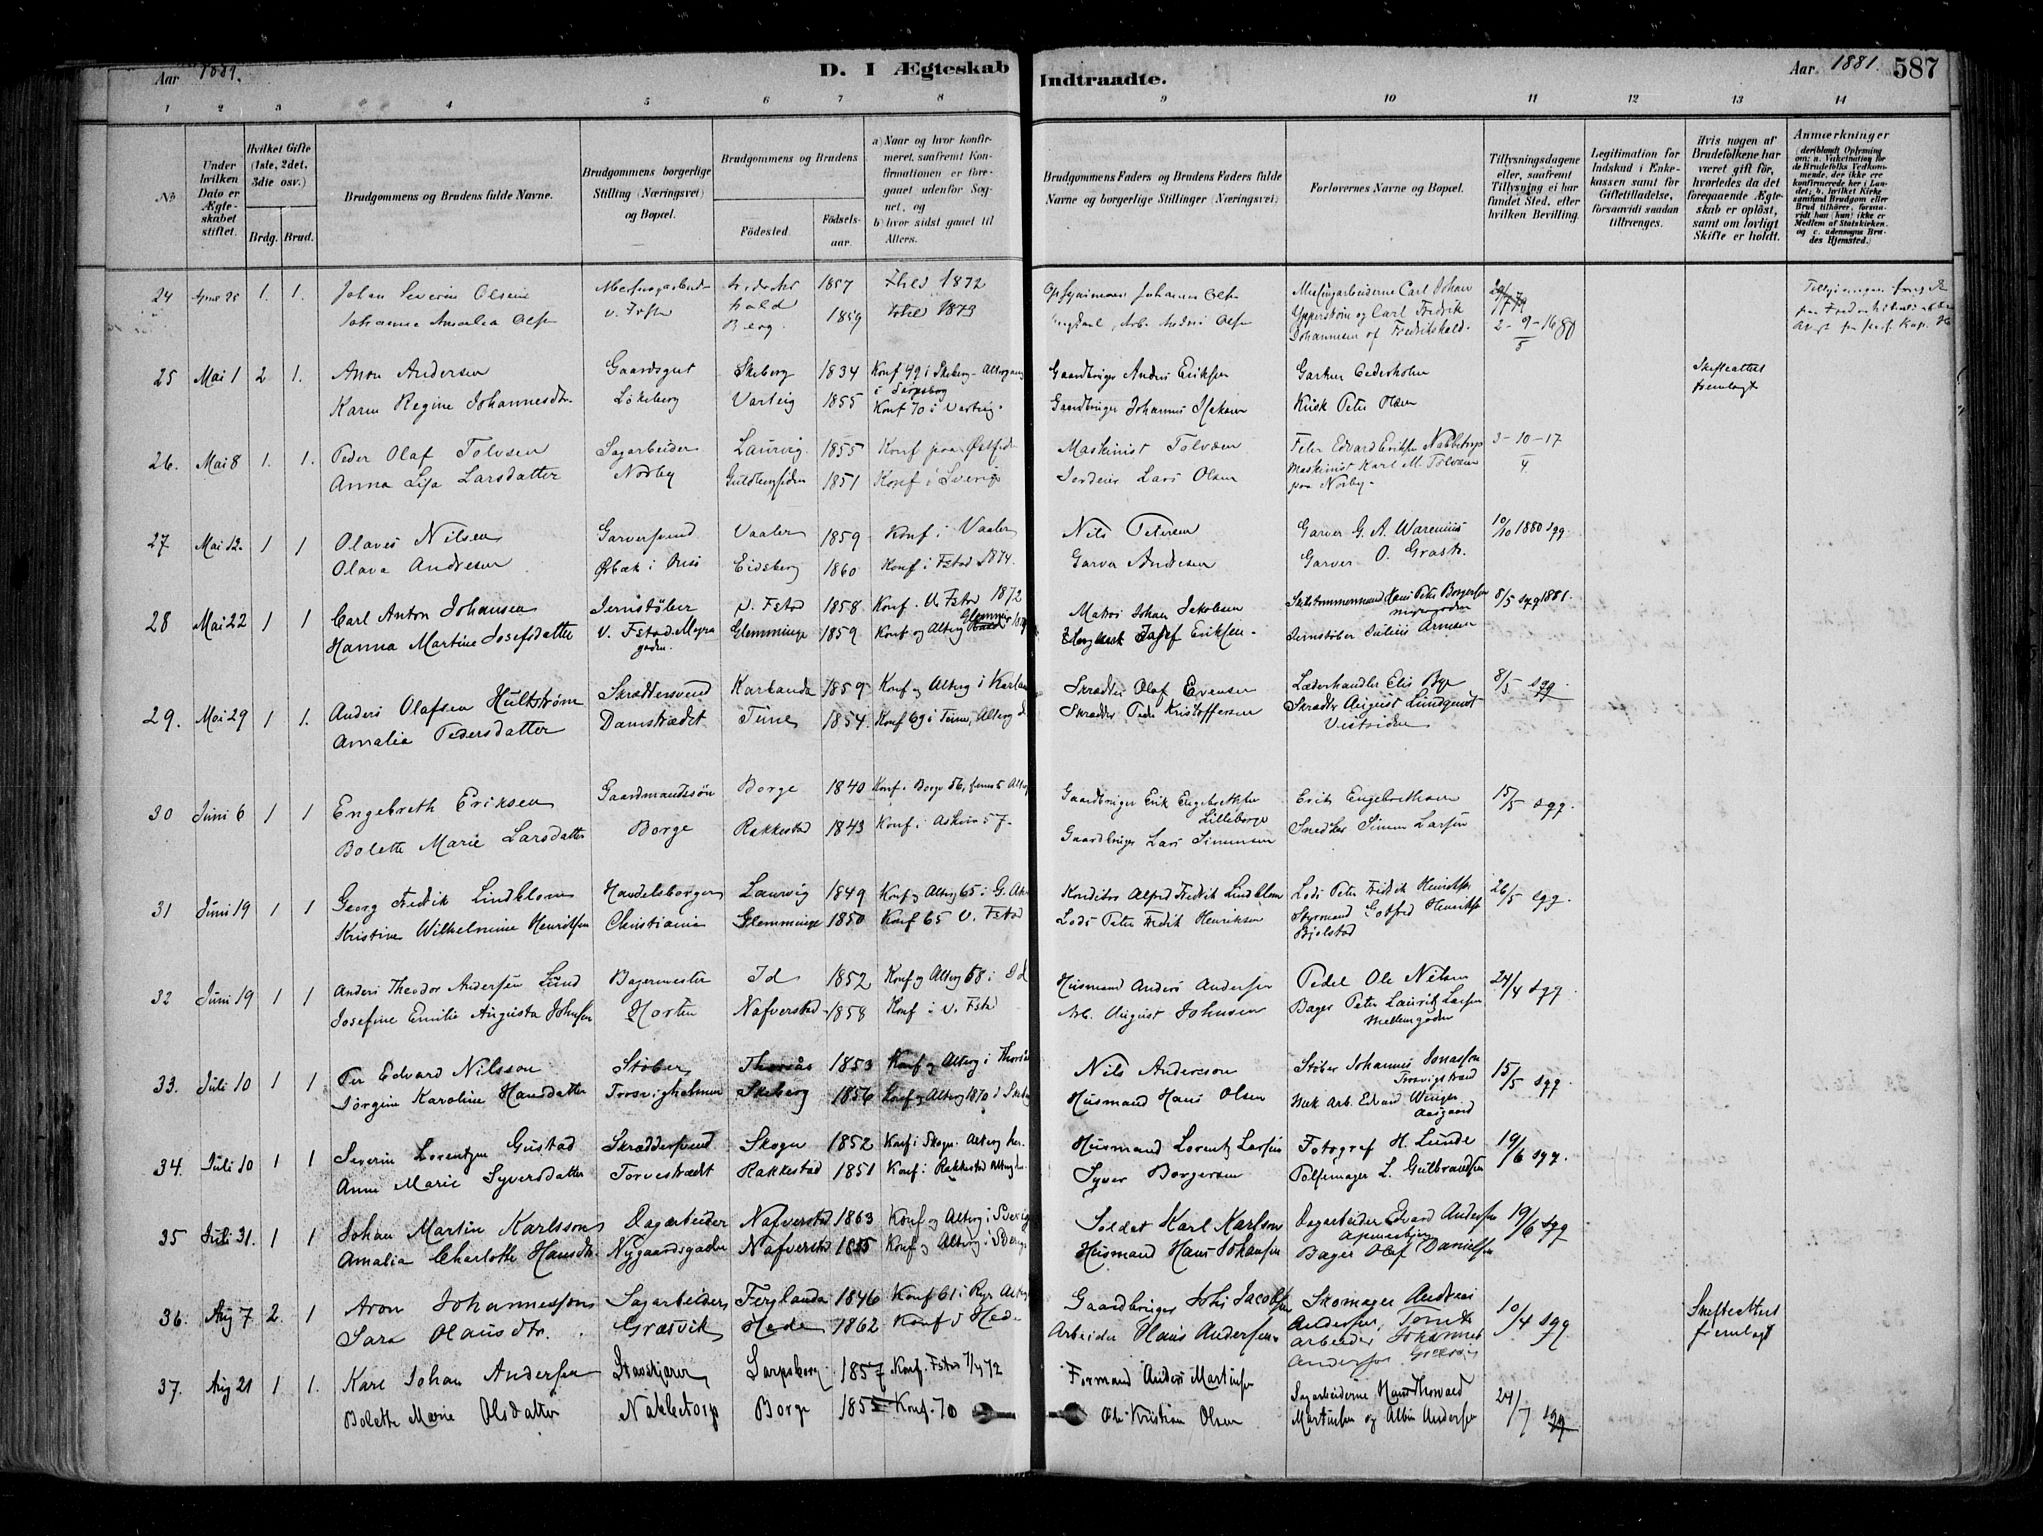 Aar 1881.
D. I Ægteskab Indtraadte.
Aar 1881. 587
1 2 3 4 5 6 7 8 9 10 11 12 13 14
No
Under hvilken Dato er Ægteskabet stiftet.
Hvilket Gifte (1ste, 2det, 3die osv.)
Brdg. Brud.
Brudgommens og Brudens fulde Navne.
Brudgommens borgerlige Stilling (Næringsvei) og Bopæl.
Brudgommens og Brudens
Födested
Födselsaar.
a) Naar og hvor konfirmeret, saafremt Konfirmationen er foregaaet udenfor Sognet, og
b) hvor sidst gaaet til Alters.
Brudgommens Faders og Brudens Faders fulde Navne og borgerlige Stillinger (Næringsvei)
Forlovernes Navne og Bopæl.
Tillysningsdagene eller, saafremt Tillysning ei har fundet Sted, efter hvilken Bevilling.
Legitimation for Indskud i Enkekassen samt for Giftetilladelse, forsaavidt saadan tiltrænges.
Hvis nogen af Brudefolkene har været gift før, hvorledes da det foregaaende Ægteskab er oplöst, samt om lovligt Skifte er holdt.
Anmærkninger
24 April 25 1. 1. Johan Severin Olsen 1857 1872
Johanne Amalia Ols. Berg. 1859 1873
Johannes Ols. Carl Johan
Carl Fredrik
Johannesen af Fredrikshald. 2-9-16
25 Mai 1 2 1. Anon Andersen Gaardsgut Skeberg 1834 Konf 49 i Skeberg - Altergang i Sarpsborg
Karen Regine Johannesdtr. Lökeberg Varteig 1855 Konf 70 i Varteig.
Gaardbruger Anders Eriksen Gartner Cederholm Skifteattest fremlagt
Gaardbruger Johannes Kusk Peter Olsen
26. Mai 8 1. 1. Peder Olaf Tolvsen Sagarbeider Laurvig 1855 Konf paa Østsiden
Anna Lisa Larsdatter Norby 1851 Konf i Sverig
Maskinist Tolvsen Edvard Eriksen Nabbetorp 3-10-17/4
Lars Olsen Maskinist Karl M. Tolvsen
paa Norby-
27 Mai 12. 1 1 Olaves Nilsen Garversvend Vaaler 1859 Konf i Vaaler
Olava Andresen Eidsberg 1860 Konf i Fstad 1874.
Nils Petersen Garver G. A. Warenius 10/10 1880 sgg.
Garver Andresen Garver O.
28 Mai 22 1 1 Carl Anton Johansen Jernstöber V. Fstad 1858. Konf. V. Fstad 1872
Hanna Martine Josefsdatter V. Fstad. Myragaden. Glemminge 1859 Konf og Alterg Glemminge
Matros Johan Jakobsen Hans Peter Borgersen 8/5 sgg 1881.
Josef Eriksen. Jernstöber Julius Arnesen
29. Mai 29 1 1. Anders Olafsen Hultström Skrædersvend Karlanda 1859 Konf og Alterg i Karlan
Amalia Pedersdatter Damstrædet Tune 1854 Konf 69 i Tune, Alterg
Skrædder Olaf Evensen Læderhandler Elis Bye 8/5 sgg
Skrædder Peder Kristoffersen Skrædder August Lundqvist
Vestsiden
30 Juni 6 1 1 Engebreth Eriksen Gaardmandssön Borge 1840 Konf. i Borge 56,
Bolette Marie Larsdatter Borge Rakkestad 1843 Konf i Askim 57.
Gaardbruger Erik Engebrethsen Lilleborge Erik Engebrethsen 15/5 sgg.
Gaardbruger Lars Simensen Snedker Simen Larsen
31 Juni 19 1 1 Georg Fredrik Lindblom Handelsborger Laurvig 1849 Konf og Alterg 65 i G. Aker
Kristine Wilhelmine Henriksen Christiania Glemminge 1850 Konf 65 V. Fstad
Konditor Alfred Fredrik Lindblom Lods Peter Fredrik Henriksen 26/5 sgg.
Lods Peter Fredrik Henriksen Styrmand Gotfred Henriksen
Bjölstad
32 Juni 19 1 1 Anders Theodor Andersen Lund Bagermester Id 1852 Konf og Alterg 68 i Id
Josefine Emilie Augusta Johnsen Horten Nafverstad 1858 Konf i V. Fstd
Husmand Anders Andersen Pedel Ole Nilsen 24/4 sgg.
Arb. August Johnsen Bager Peter Lauritz Larsen
Mellemgaden
33. Juli 10 1 1 Per Edvard Nilsson Stöber 1853 Konf og Alterg i
Jörgine Karoline Hansdatter Torsvigholmen Skeberg 1856 Konf og Alterg 1870 i Skeberg
Nils Andersson Stöber Johannes Jonassen Torsvigstrand 15/5 sgg.
Husmand Hans Olsen Edvard Winger Aasgaard
34. Juli 10 1 1 Severin Lorentzen Gustad Skræddersvend Skogn 1852 Konf i Skogn. Alterg her.
Anne Marie Syversdatter Torvestrædt Rakkestad 1851 Konf i Rakkestad Alterg her
Husmand Lorentz Larsen Fotograf H. Lunde 19/6 sgg.
Syver Borgersen Pölsemager L. Gulbrandsen
35 Juli 31. 1 1 Johan Martin Karlsson Dagarbeider Nafverstad 1863 Konf og Alterg i Sverig
Amalia Charlotte Hansdtr. Nygaardsgaden Nafverstd 1855 Konf og Alterg i Sverige
Soldat Karl Karlson Dagarbeider Edvard Andersen 19/6 sgg
Husmand Hans Johansen Bager Olof Danielsen
36. Aug 7 2. 1 Aron Johannesson Sagarbeider Ferglanda 1846 Konf 61 i Ryr Alterg
Sara Olausdtr. Græsvik Hede 1862 Konf i Hede
Gaardbruger Johs Jacobsen Skomager Andreas Andersen, Tomta 10/4 sgg Skifteattest fremlagt
Arbeider Olaus Andersen Arbeider Johannes Andersen Græsvig
37. Aug 21 1. 1. Karl Johan Andersen Stavskjærer Sarpsborg 1857 Konf. Fstad 7/4 72
Bolette Marie Olsdatter Nabbetorp Borge 1855 Konf. 70
Formand Anders Martinsen Sagarbeiderne Hans Thorvald 24/7 sgg
Ole Kristian Olsen Martinsen og Albin Andersen